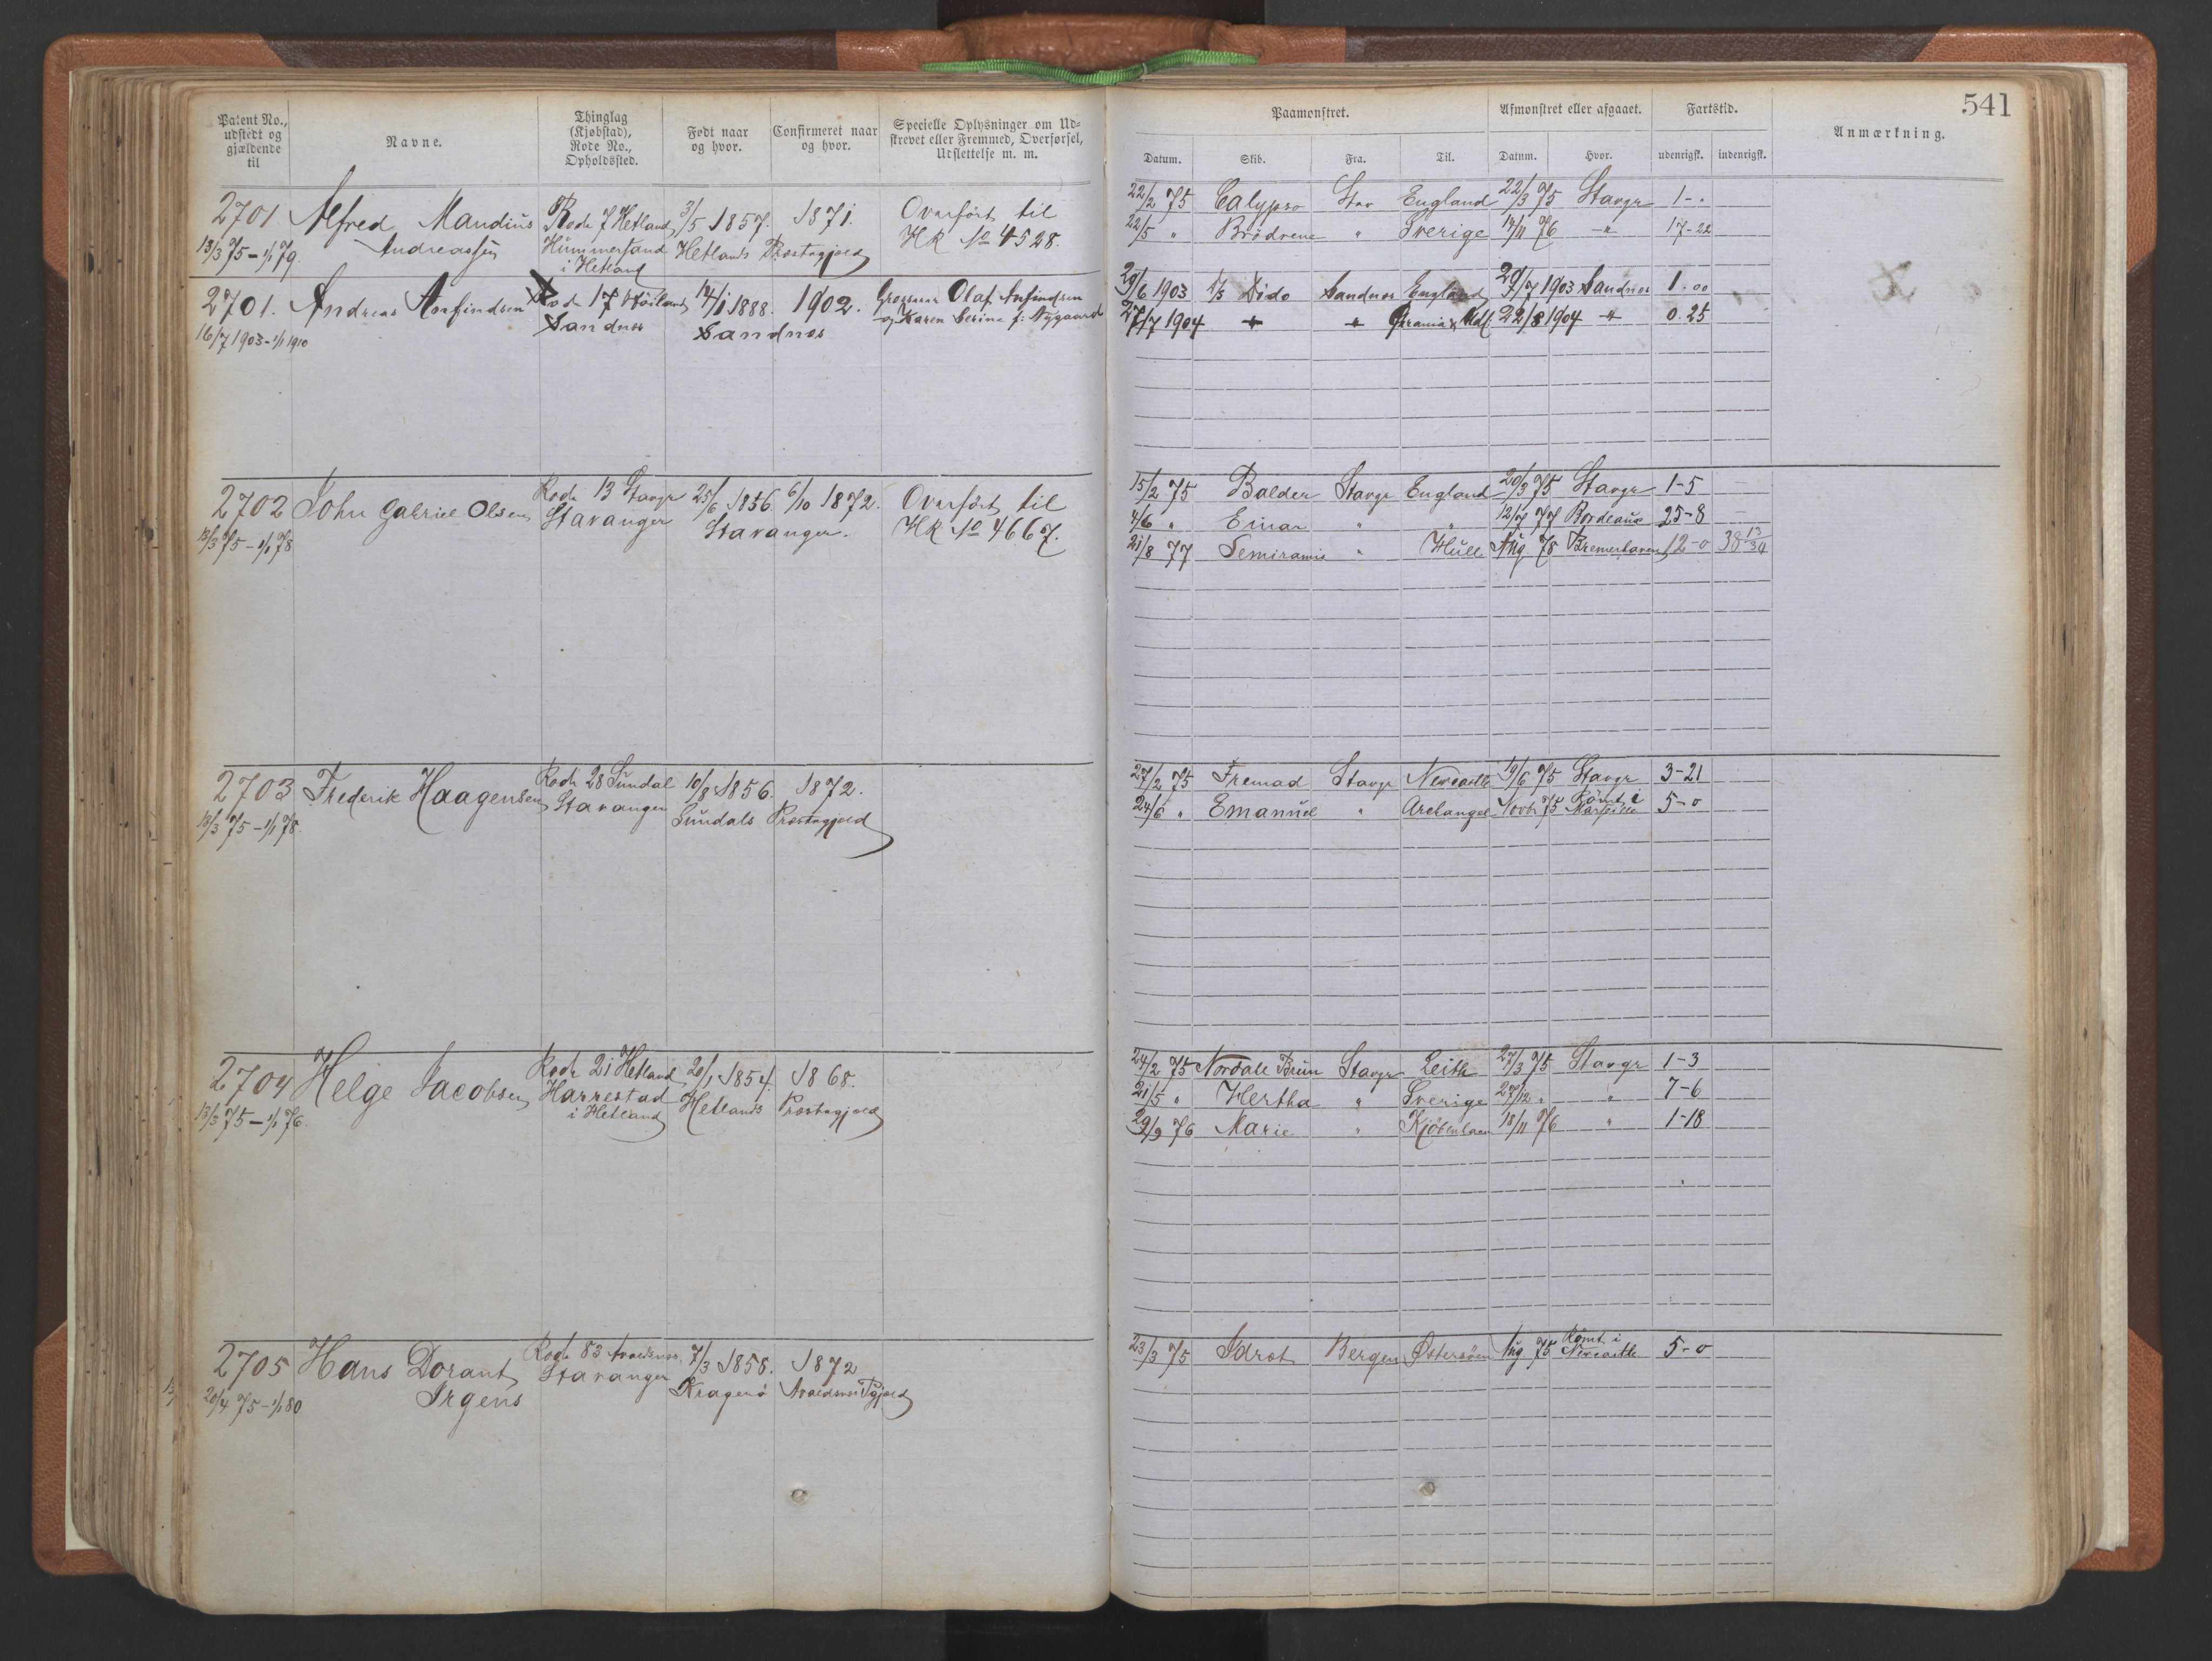 541
Patent No., udstedt og gjældende til
Navne.
Thinglag (Kjøbstad), Rode No., Opholdssted.
Født naar og hvor.
Confirmeret naar og hvor.
Specielle Oplysninger om Udskrevet eller Fremmed, Overførsel, Udslettelse m. m.
Paamønstret.
Afmønstret eller afgaaet.
Fartstid.
Anmærkning.
Datum. Skib. Fra. Til. Datum. Hvor. udenrigsk. indenrigsk.
2701 Alfred Mandius Rode 7 Hetland 3/5 1857. 1871. Overført til
Andreassen Hummersand Hetlands Præstegjeld HR No 4528.
13/3 75 - 1/1 79. i Hetland
22/2 75 Calypso Stav England 22/3 75 Stavgr 1-"
22/5 " Brødrene " Sverige 14/11 76 -"- 17-22
2701. Andreas Anfindsen Rode 17 Høiland 14/1 1888. 1902. Olaf Anfindsen
16/7 1903 - 1/1 1910 Sandnes Sandnes og Karen Serine f: Nygaard
29/6 1903 D/S Dido Sandnes England 29/7 1903 Sandnes 1.00
27/7 1904 " " 22/8 1904 " 0.25
2702 John Gabriel Olsen Rode 13 Stavgr 25/6 1856. 6/10 1872. Overført til
13/3 75 - 1/1 78 Stavanger Stavanger. HR No 4667.
15/2 75 Balder Stavgr England 20/3 75 Stavgr 1-5
4/6 " Einar " " 12/7 77 Bordeaux 25-8
21/8 77 Semiramis " Hull Aug 78 Bremerhaven 12-0 38 13/30
2703 Frederik Haagensen Rode 28 Sundal 10/8 1856. 1872.
13/3 75 - 1/1 78. Stavanger Sundals Præstegjeld
27/2 75 Fremad Stavgr Newcastle 19/6 75 Stavgr 3-21
24/6 " Emanuel " Archangel Novbr 75 Rømt i Marseille 5-0
2704 Helge Jacobsen Rode 21 Hetland 20/1 1854. 1868.
13/3 75 - 1/1 76. Harrestad i Hetland Hetlands Præstegjeld
24/2 75 Nordale Brun Stavgr Leith 27/3 75 Stavgr 1-3
21/5 " Hertha " Sverige 27/12 " " 7-6
29/9 76 Marie " Kjøbenhavn 18/11 76 " 1-18
2705 Hans Dorant Rode 83 7/3 1858. 1872
20/4 75 - 1/1 80 Irgens Stavanger Kragerø
23/3 75 Idræt Bergen Østersøen Aug 75 Rømt i Newcastle 5-0